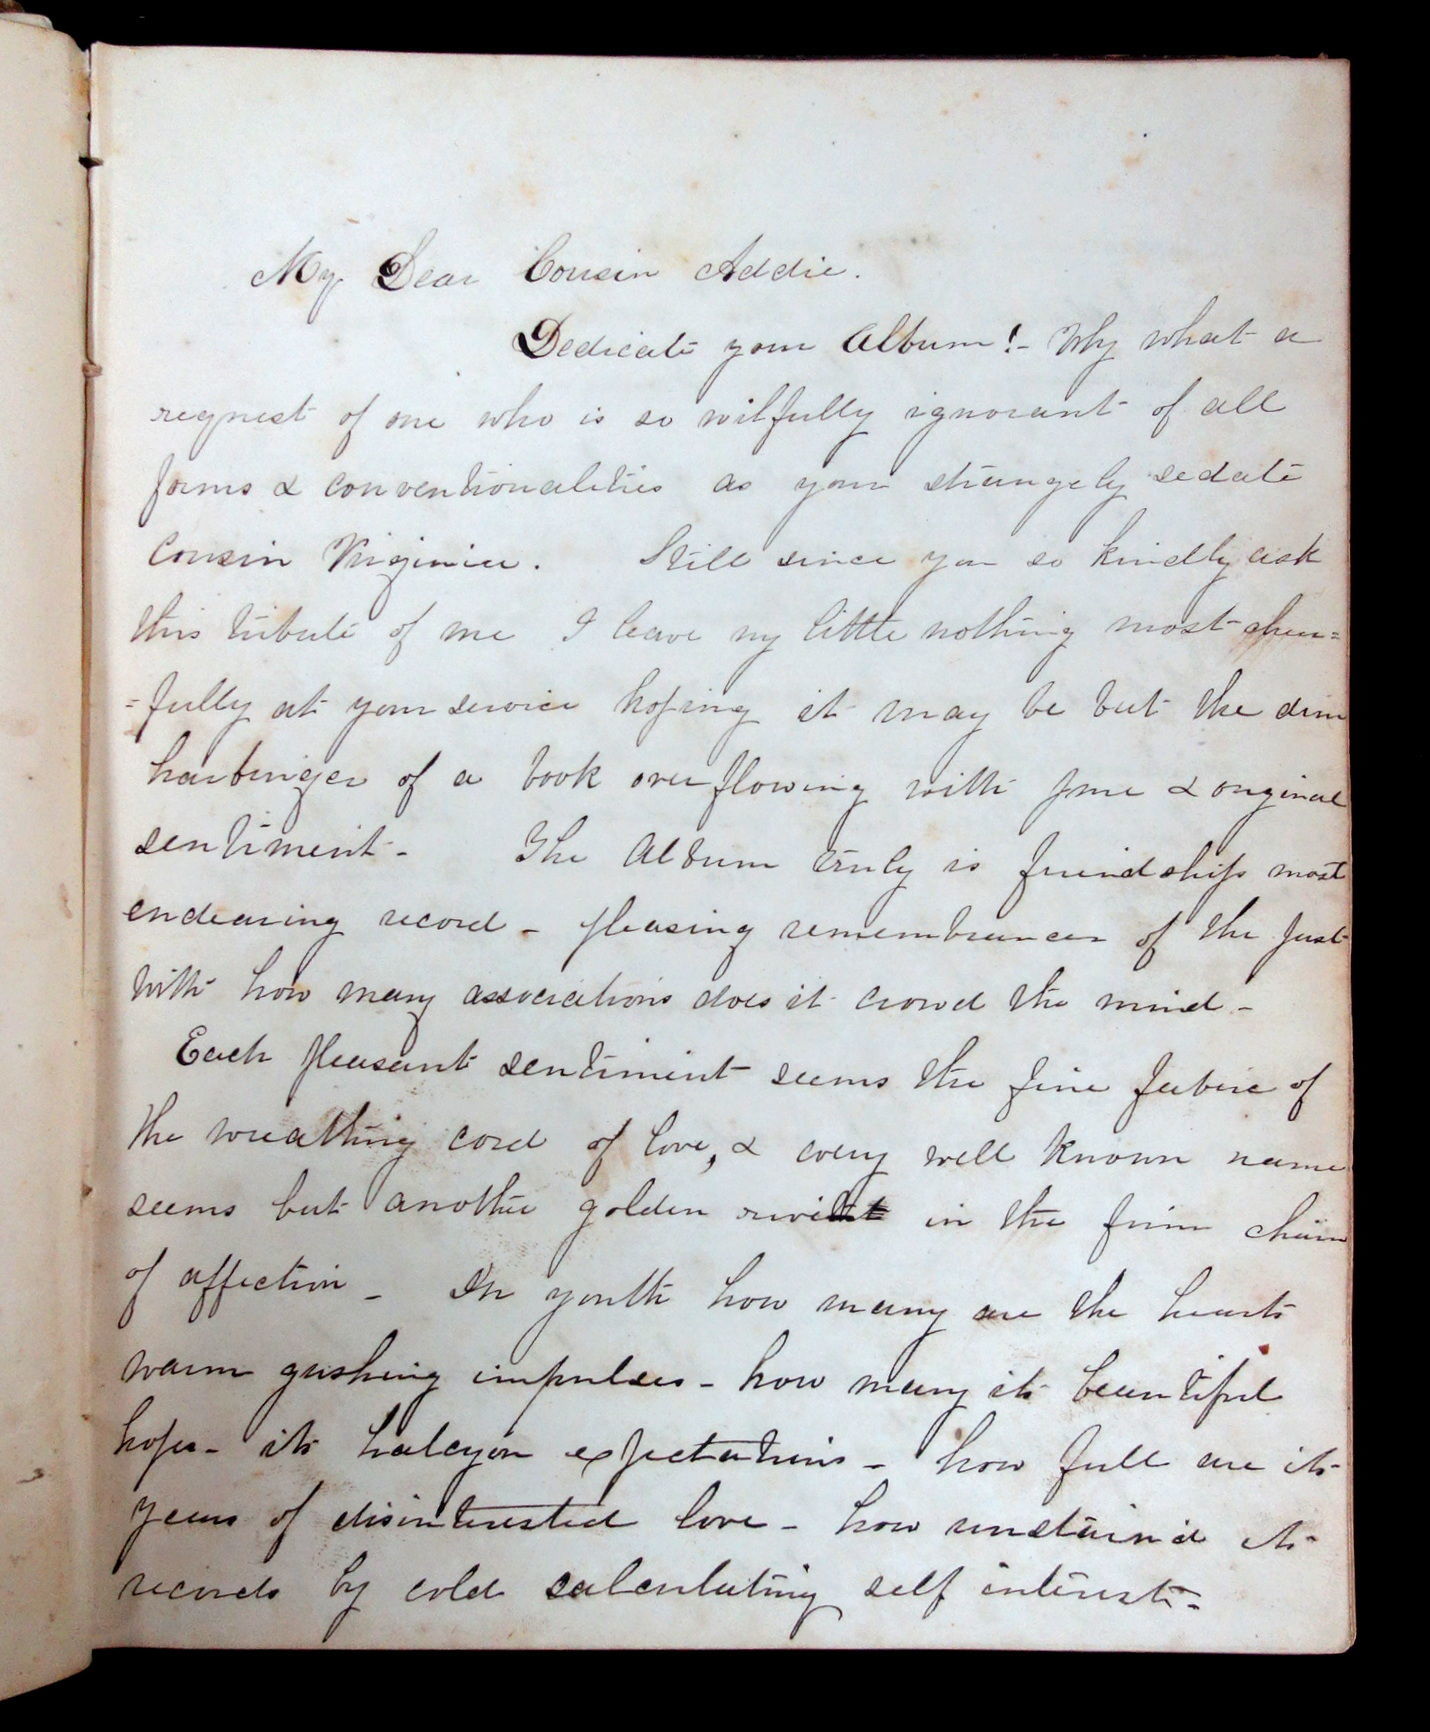 My Dear Cousin Addie.
Dedicate your Album! - Why what a
request of one who is so wilfully ignorant of all
forms & conventionalities as your strangely sedate
Cousin Virginia. Still since you so kindly ask
this tribute of me I leave my little nothing most cheer=
=fully at your service hoping it may be but the dim
harbinger of a book overflowing with pure & original
sentiment - The Album truly is friendships most
endearing record - pleasing remembrancer of the past
With how many associations does it crowd the mind -
Each pleasant sentiment seems the fine fabric of
the wreathing cord of love, & every well known name
seems but another golden in the firm chain
of affection - In youth how many are the hearts
warm gushing impulses - how many its beautiful
hopes - its halcyon expectations - how full are its
years of disinterested love - how unstain'd its
records by cold calculating self interest -